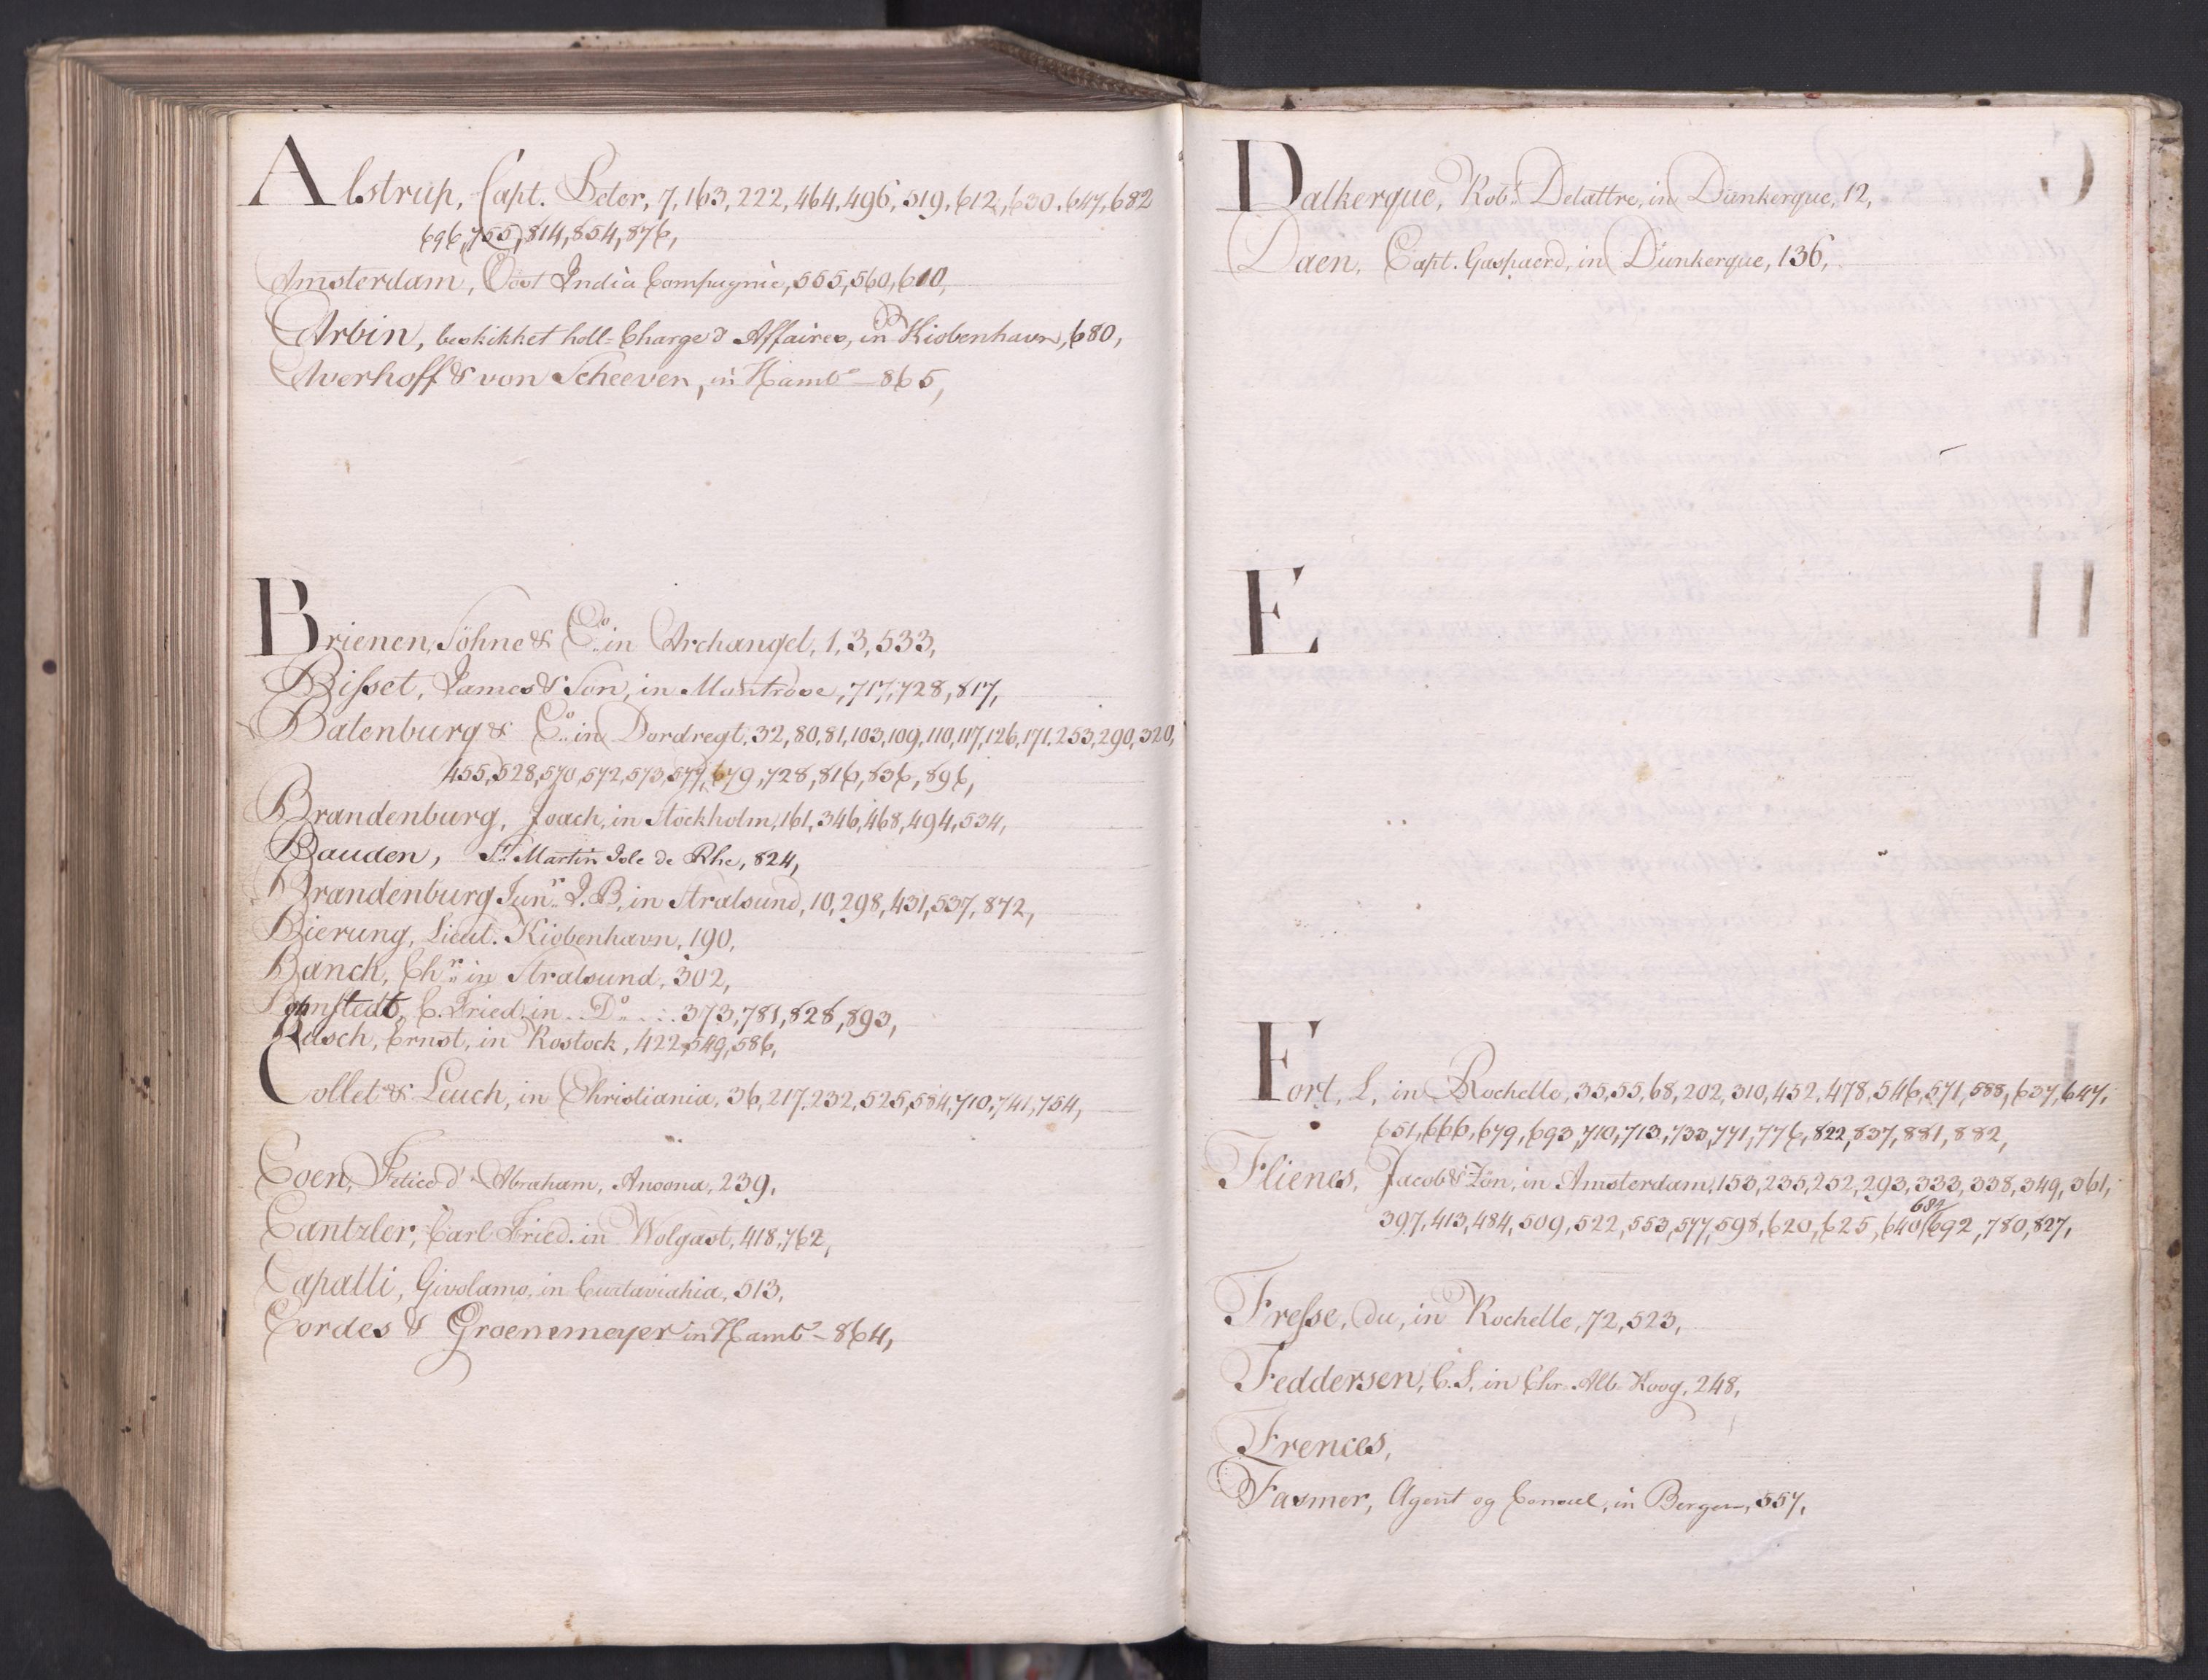 Alstrup, Capt. Peter, 7, 163, 222, 464, 496, 519, 612, 630, 647, 682
696, 755, 814, 854, 876,
Amsterdam, Oost India Compagnie, 555, 560, 610,
Arbin, beskikket holl- Charge d'Affaires, in Kiobenhavn, 680,
Averhoff & von Scheeven, in Hambo 865,
Brienen, Söhne & Co. in Archangel, 1, 3, 533,
Bisset, James & Son, in Muntrose, 717, 728, 817,
Batenburg & Co. in Dordregt, 32, 80, 81, 103, 109, 110, 117, 126, 171, 253, 290, 320,
455, 528, 570, 572, 573, 579, 679, 728, 816, 836, 896,
Brandenburg, Joach, in Stockholm, 161, 346, 468, 494, 534,
Bauden, St. Martin Isle de Rhe, 824,
Brandenburg Junr. J. B. in Stralsund, 10, 298, 431, 537, 872,
Bierung, Lieut. Kiobenhavn, 190,
Banck, Chr. in Stralsund, 302,
C. Fried. in Do 373, 781, 828, 893,
Ernst, in Rostock, 422, 549, 586,
Collet & Leuch, in Christiania, 36, 217, 232, 525, 584, 710, 741, 754,
Coen, d'Abraham, Ancona, 239,
Cantzler, Carl Fried. in Wolgast, 418, 762,
Capatti, Girolamo, in 513,
Cordes & Groenemeyer in Hambo 864,
Dalkerque, Robt. Delattre, in Dünkerque, 12,
Daen, Capt. Gaspaerd, in Dünkerque, 136,
E
Fort, L, in Rochelle, 35, 55, 68, 202, 310, 452, 478, 546, 571, 588, 637, 647,
651, 666, 679, 693, 710, 713, 733, 771, 776, 822, 837, 881, 882,
Flienes, Jacob & Zon, in Amsterdam, 153, 235, 252, 293, 333, 338, 349, 361,
684
397, 413, 484, 509, 522, 553, 577, 598, 620, 625, 640, 692, 780, 827,
Fresse, du, in Rochelle, 72, 523,
Feddersen, C. S. in Chr. Alb. Koog, 248,
Frences,
Fasmer, Agent og Consul, in Bergen, 557,